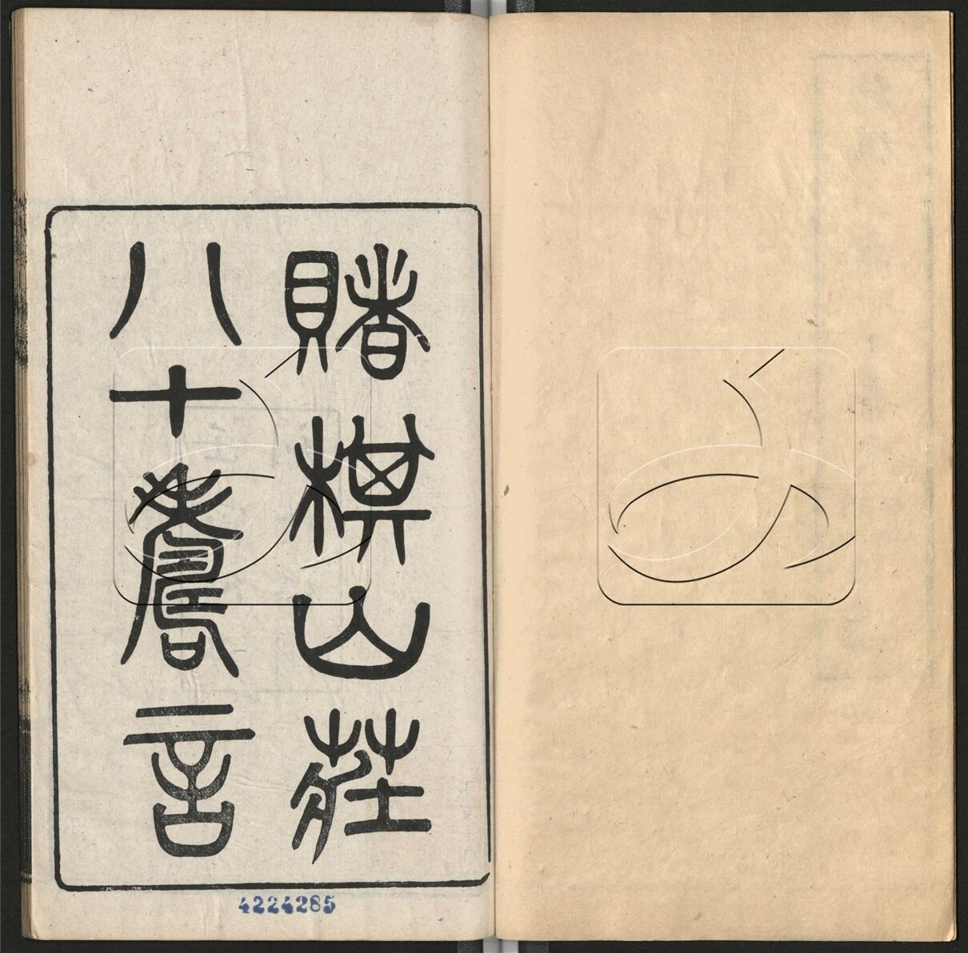 賭棋山莊
八十壽言
4224285